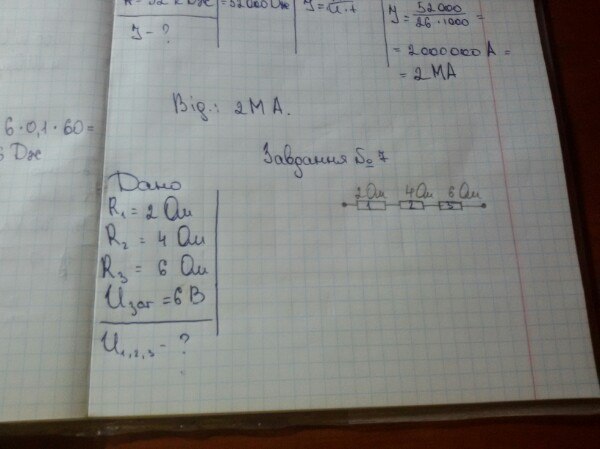 6·0,1·60=
Дж
= 52000 Дж
J - ?
J = 52000 / 26·1000 =
= 2000000 А =
= 2 МА
Від.: 2 МА.
Завдання № 7
Дано
R₁ = 2 Ом
R₂ = 4 Ом
R₃ = 6 Ом
Uзаг = 6 В
U₁,₂,₃ - ?
2 Ом 4 Ом 6 Ом
1 2 3